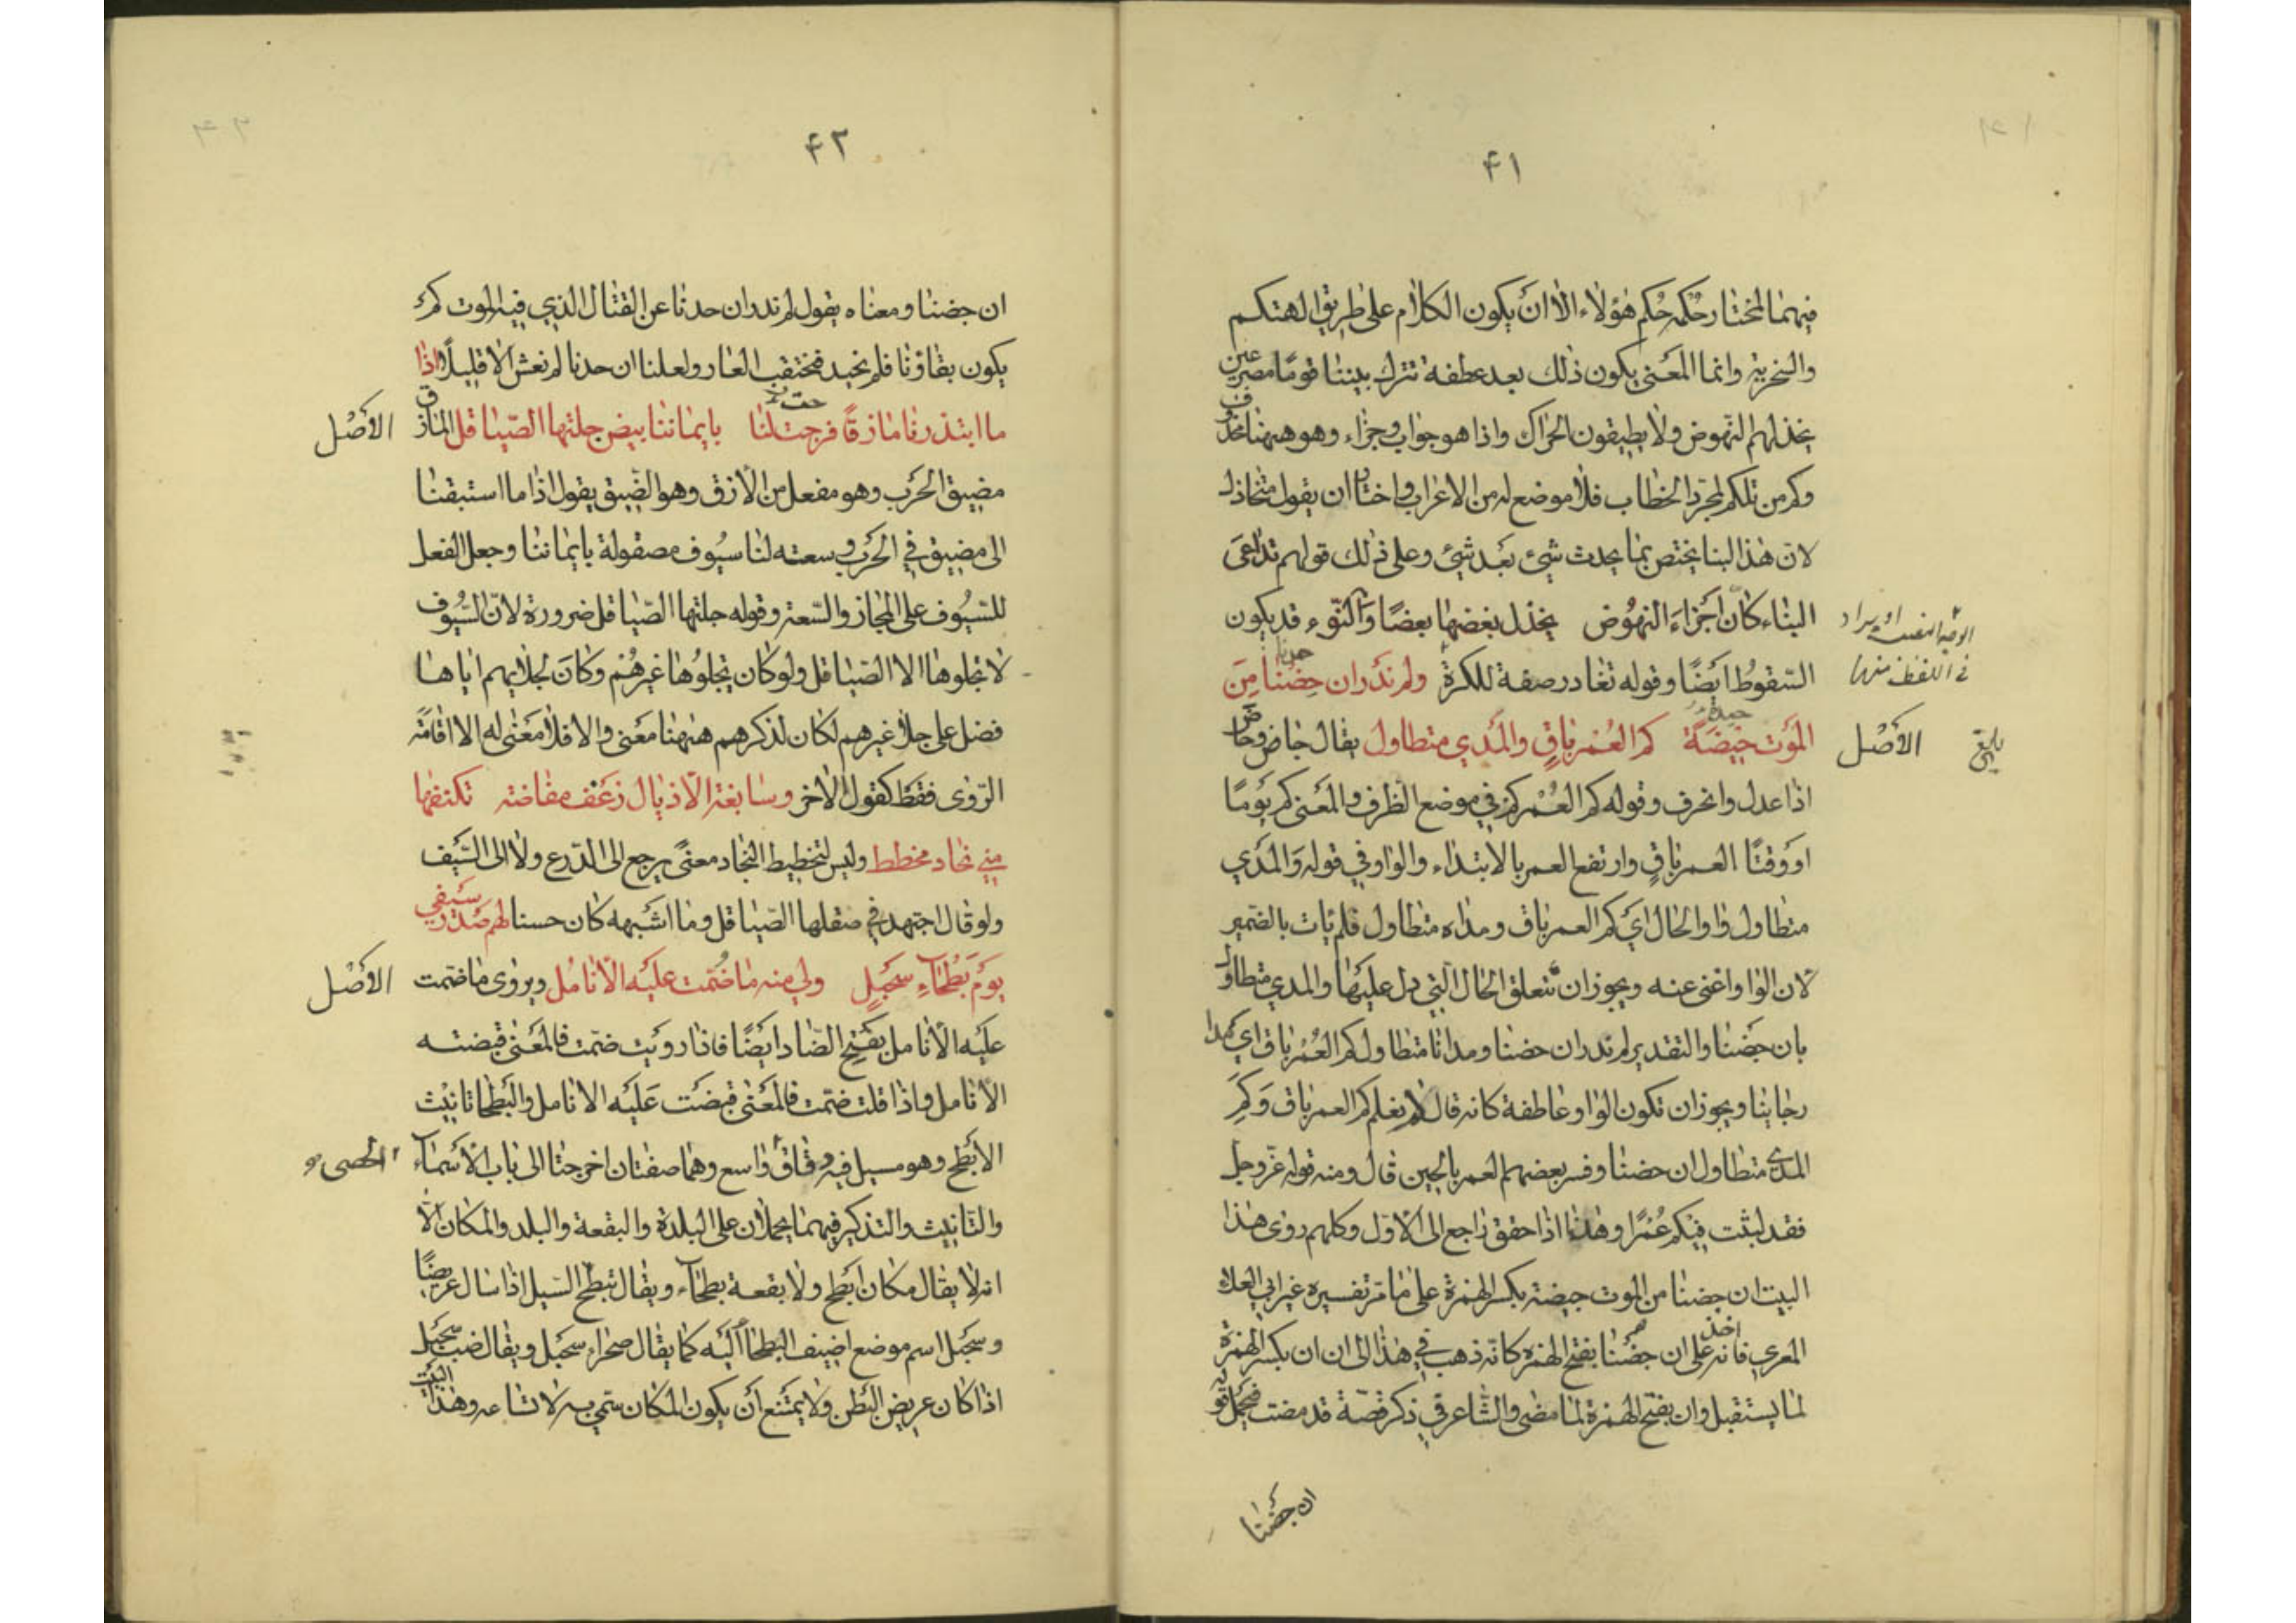 ۴۱
فيهما المختار حكمه حكم هؤلاء الا ان يكون الكلام على طريق الهتكم
والسخرية وانما المعنى يكون ذلك بعد عطفة تترك بيننا قومًا مصرعين
يخذلهم النهوض ولا يطيقون الحراك واذا هو جواب وجزاء وهو ههنا
وكم من تلكم لمجرد الخطاب فلا موضع له من الاعراب واختار ان يقول متخاذل
لان هذا البنا يختص بما يحدث شئ بعد شئ وعلى ذلك قولهم تداعى
البناء كان اجزاء النهوض يخذل بعضها بعضًا والنوء قد يكون
السقوط ايضًا وقوله تغادر صفة للكرة ولم ندر ان جضنا من
الموت جيضة كم العمر باق والمدي متطاول يقال جاض وحاص
الأصل
اذا عدل وانحرف وقوله كم العمر كم في موضع الظرف والمعنى كم يومًا
او وقتًا العمر باق وارتفع العمر بالابتداء والواو في قوله والمدي
متطاول واو الحال اي كم العمر باق ومداه متطاول فلم يات بالضمير
لان الواو اغنى عنه ويجوز ان تتعلق الحال التي دل عليها والمدي متطاول
بان جضنا والتقدير لم ندر ان جضنا ومدانا متطاول كم العمر باق اي مدا
رجاينا ويجوز ان تكون الواو عاطفة كانه قال لم نعلم كم العمر باق وكم
المدى متطاول ان حضنا وفسر بعضهم العمر بالحين قال ومنه قوله عز وجل
فقد لبثت فيكم عمرًا وهذا اذا حقق راجع الى الاول وكلهم روى هذا
البيت ان جضنا من الموت جيضة بكسر الهمزة على ما مر تفسيره غير ابي العلاء
المعري فانه اخذ على ان جضنا بفتح الهمزة كانه ذهب في هذا الى ان ان بكسر الهمزة
لما يستقبل وان بفتح الهمزة لما مضى والشاعر في ذكر قصة قد مضت فيحمل قوله
ان جضنا
۴۲
ان جضنا ومعناه يقول لم ندر ان حدنا عن القتال الذي فيه الموت كم
يكون بقاؤنا فلم نحيد فنحتقب العار ولعلنا ان حدنا لم نعش الا قليلًا اذا
ما ابتدرنا مازقًا فرجت لنا بايماننا بيض جلتها الصياقل المازق
الأصل
مضيق الحرب وهو مفعل من الازق وهو الضيق يقول اذا ما استبقنا
الى مضيق في الحرب وسعته لنا سيوف مصقولة بايماننا وجعل الفعل
للسيوف على المجاز والسعة وقوله جلتها الصياقل ضرورة لان السيوف
لا تجلوها الا الصياقل ولو كان يجلوها غيرهم وكان لجلائهم اياها
فضل على جلاء غيرهم لكان لذكرهم ههنا معنى والا فلا معنى له الا اقامة
الروى فقط كقول الاخر وسابغة الاذيال زغف مفاضة تكنفها
مني نجاد مخطط وليس لتخطيط النجاد معنًى يرجع الى الدرع ولا الى السيف
ولو قال اجتهد في صقلها الصياقل وما اشبهه كان حسنا لهم صدر سيفي
يوم بطحاء سحبل ولي منه ما ضمت عليه الانامل ويروى ما ضمت
الأصل
عليه الانامل بفتح الضاد ايضًا فاذا رويت ضمت فالمعنى قبضته
الانامل واذا قلت ضمت فالمعنى قبضت عليه الانامل والبطحا تانيث
الابطح وهو مسيل فيه دقاق واسع وهما صفتان اخرجتا الى باب الاسماء
الحصى
والتانيث والتذكير فيهما يحملان على البلدة والبقعة والبلد والمكان الا
انه لا يقال مكان ابطح ولا بقعة بطحاء ويقال تبطح السيل اذا سال عريضًا
وسحبل اسم موضع اضيف البطحا اليه كما يقال صحراء سحبل ويقال ضب سحبل
اذا كان عريض البطن ولا يمتنع أن يكون المكان سمي به لاتساعه وهذا البيت